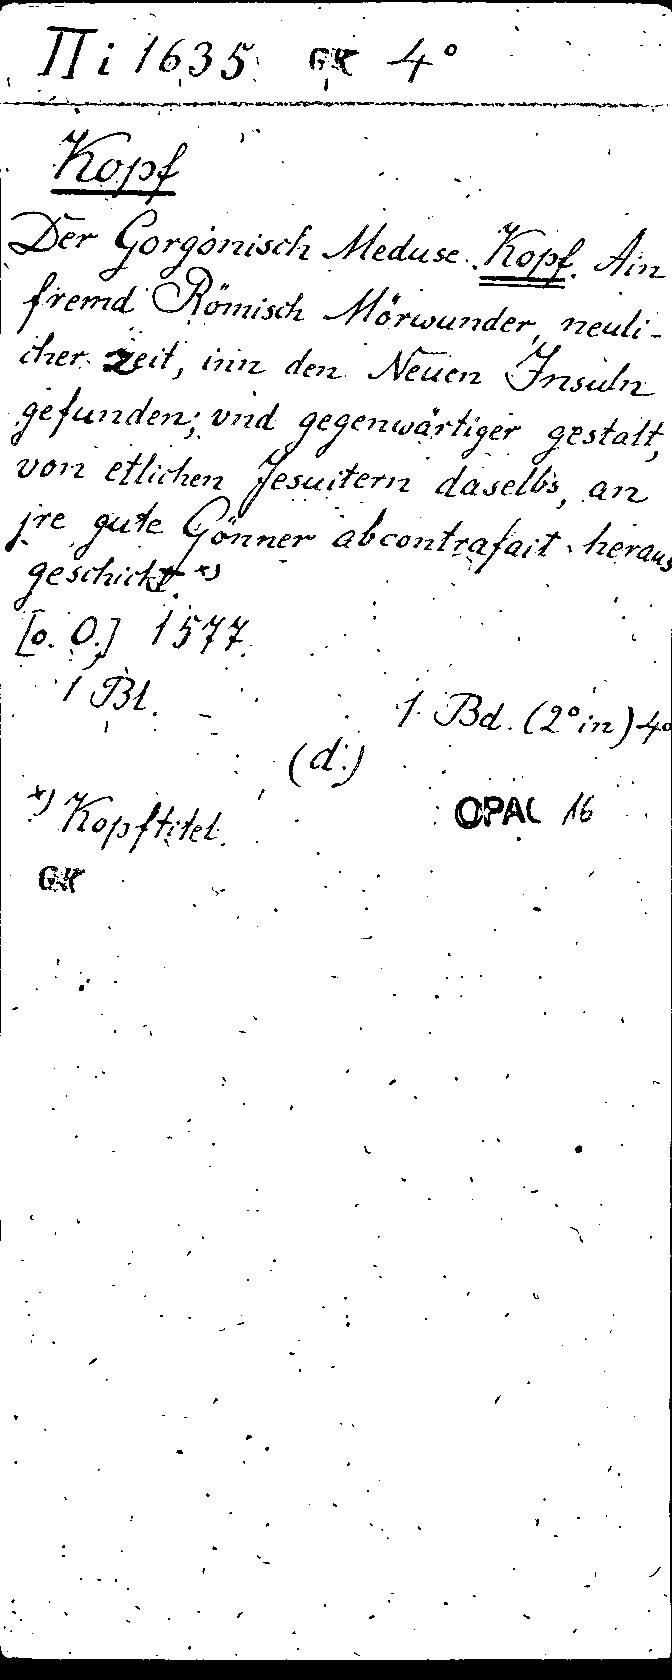 IIi 1635 GK 4°
Kopf
Der Gorgonisch Meduse Kopf. Ain
fremd Römisch Mörwunder, neuli-
cher zeit, inn den Neuen Insuln
gefunden; vnd gegenwärtiger gestalt,
von etlichen Jesuitern daselbs, an
jre gute Gönner abcontrafait heraus
geschickt.*)
[o. O.] 1577.
1 Bl.
1 Bd. (2° in) 4°
(d.)
*) Kopftitel.
OPAC 16
GK